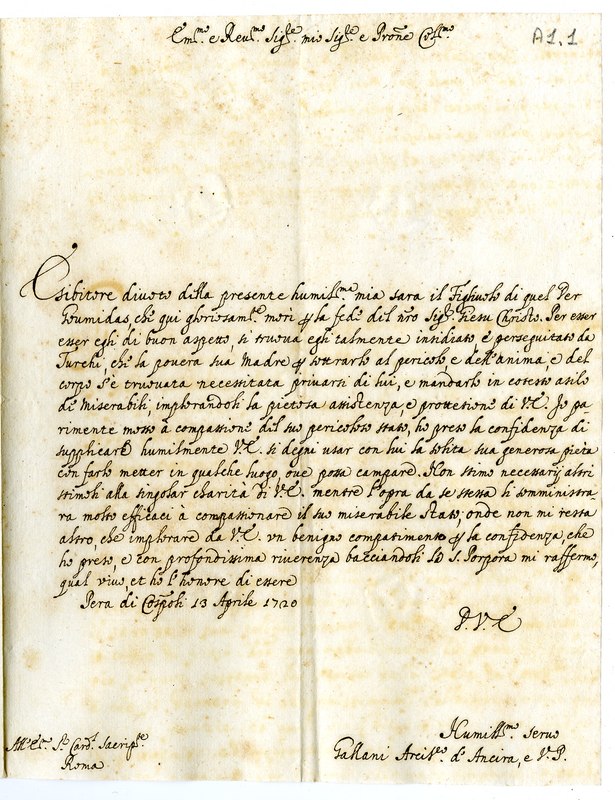 A1.1
Em.mo e Reu.mo Sig.re mio Sig.re e Prone Col.mo
Esibitore diuoto della presente humil.ma mia sara il Figliuolo di quel Der
Goumidas, che qui gloriosam.te morì per la fede del nro Sig.re Giesu Christo. Per esser
esser egli di buon aspetto, si truoua egli talmente insidiato, e perseguitato da
Turchi, che la pouera sua Madre per sottrarlo al pericolo, e dell'anima, e del
corpo s'è truouata necessitata priuarsi di lui, e mandarlo in cotesto asilo
de Miserabili, implorandoli la pietosa assistenza, e protettione di V.E. Io pa
rimente mosso à compassione del suo pericoloso stato, ho preso la confidenza di
supplicare humilmente V.E. si degni usar con lui la solita sua generosa pietà
con farlo metter in qualche luogo, oue possa campare. Non stimo necessarij altri
stimoli alla singolar charità di V.E. mentre l'opra da se stessa li somministra
ra molto efficaci à compassionare il suo miserabile stato; onde non mi resta
altro, che implorare da V.E. vn benigno compatimento per la confidenza, che
ho preso, e con profondissima riuerenza bacciandoli la S. Porpora mi raffermo,
qual viuo, et ho l'honore di essere
Pera di Cospoli 13 Aprile 1720
D.V.E.
Humill.mo seruo
Gallani Arciu.o d'Ancira, e V.P.
All'E.mo S.r Card.l Sacrip.te
Roma